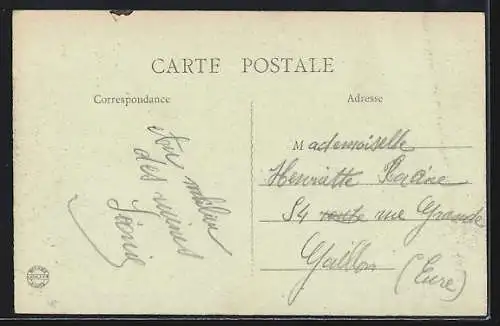 CARTE POSTALE
Correspondance
Adresse
Au milieu
des ruines
Léonie
Mademoiselle
Henriette Racine
54 route rue Grande
Gaillon
(Eure)